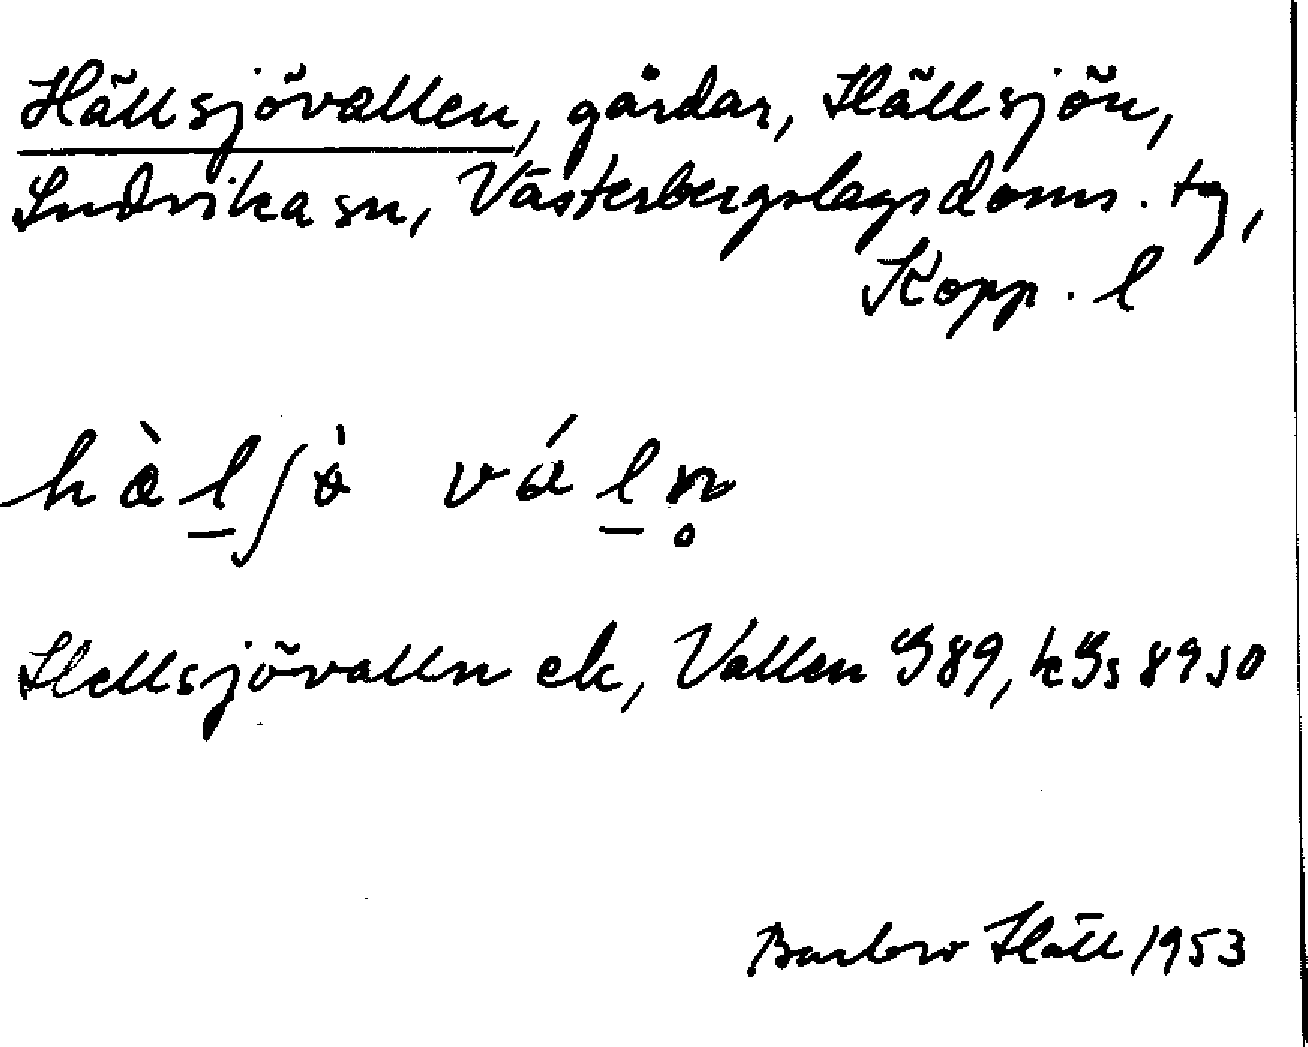 Hällsjövallen, gårdar, Hällsjön,
Ludvika sn, Västerbergslags doms. tg,
Kopp. l
hàlʃɵ̀ váln̥
Hellsjövalln ek, Vallen G89, k Gs 89 SO
Barbro Häll 1953